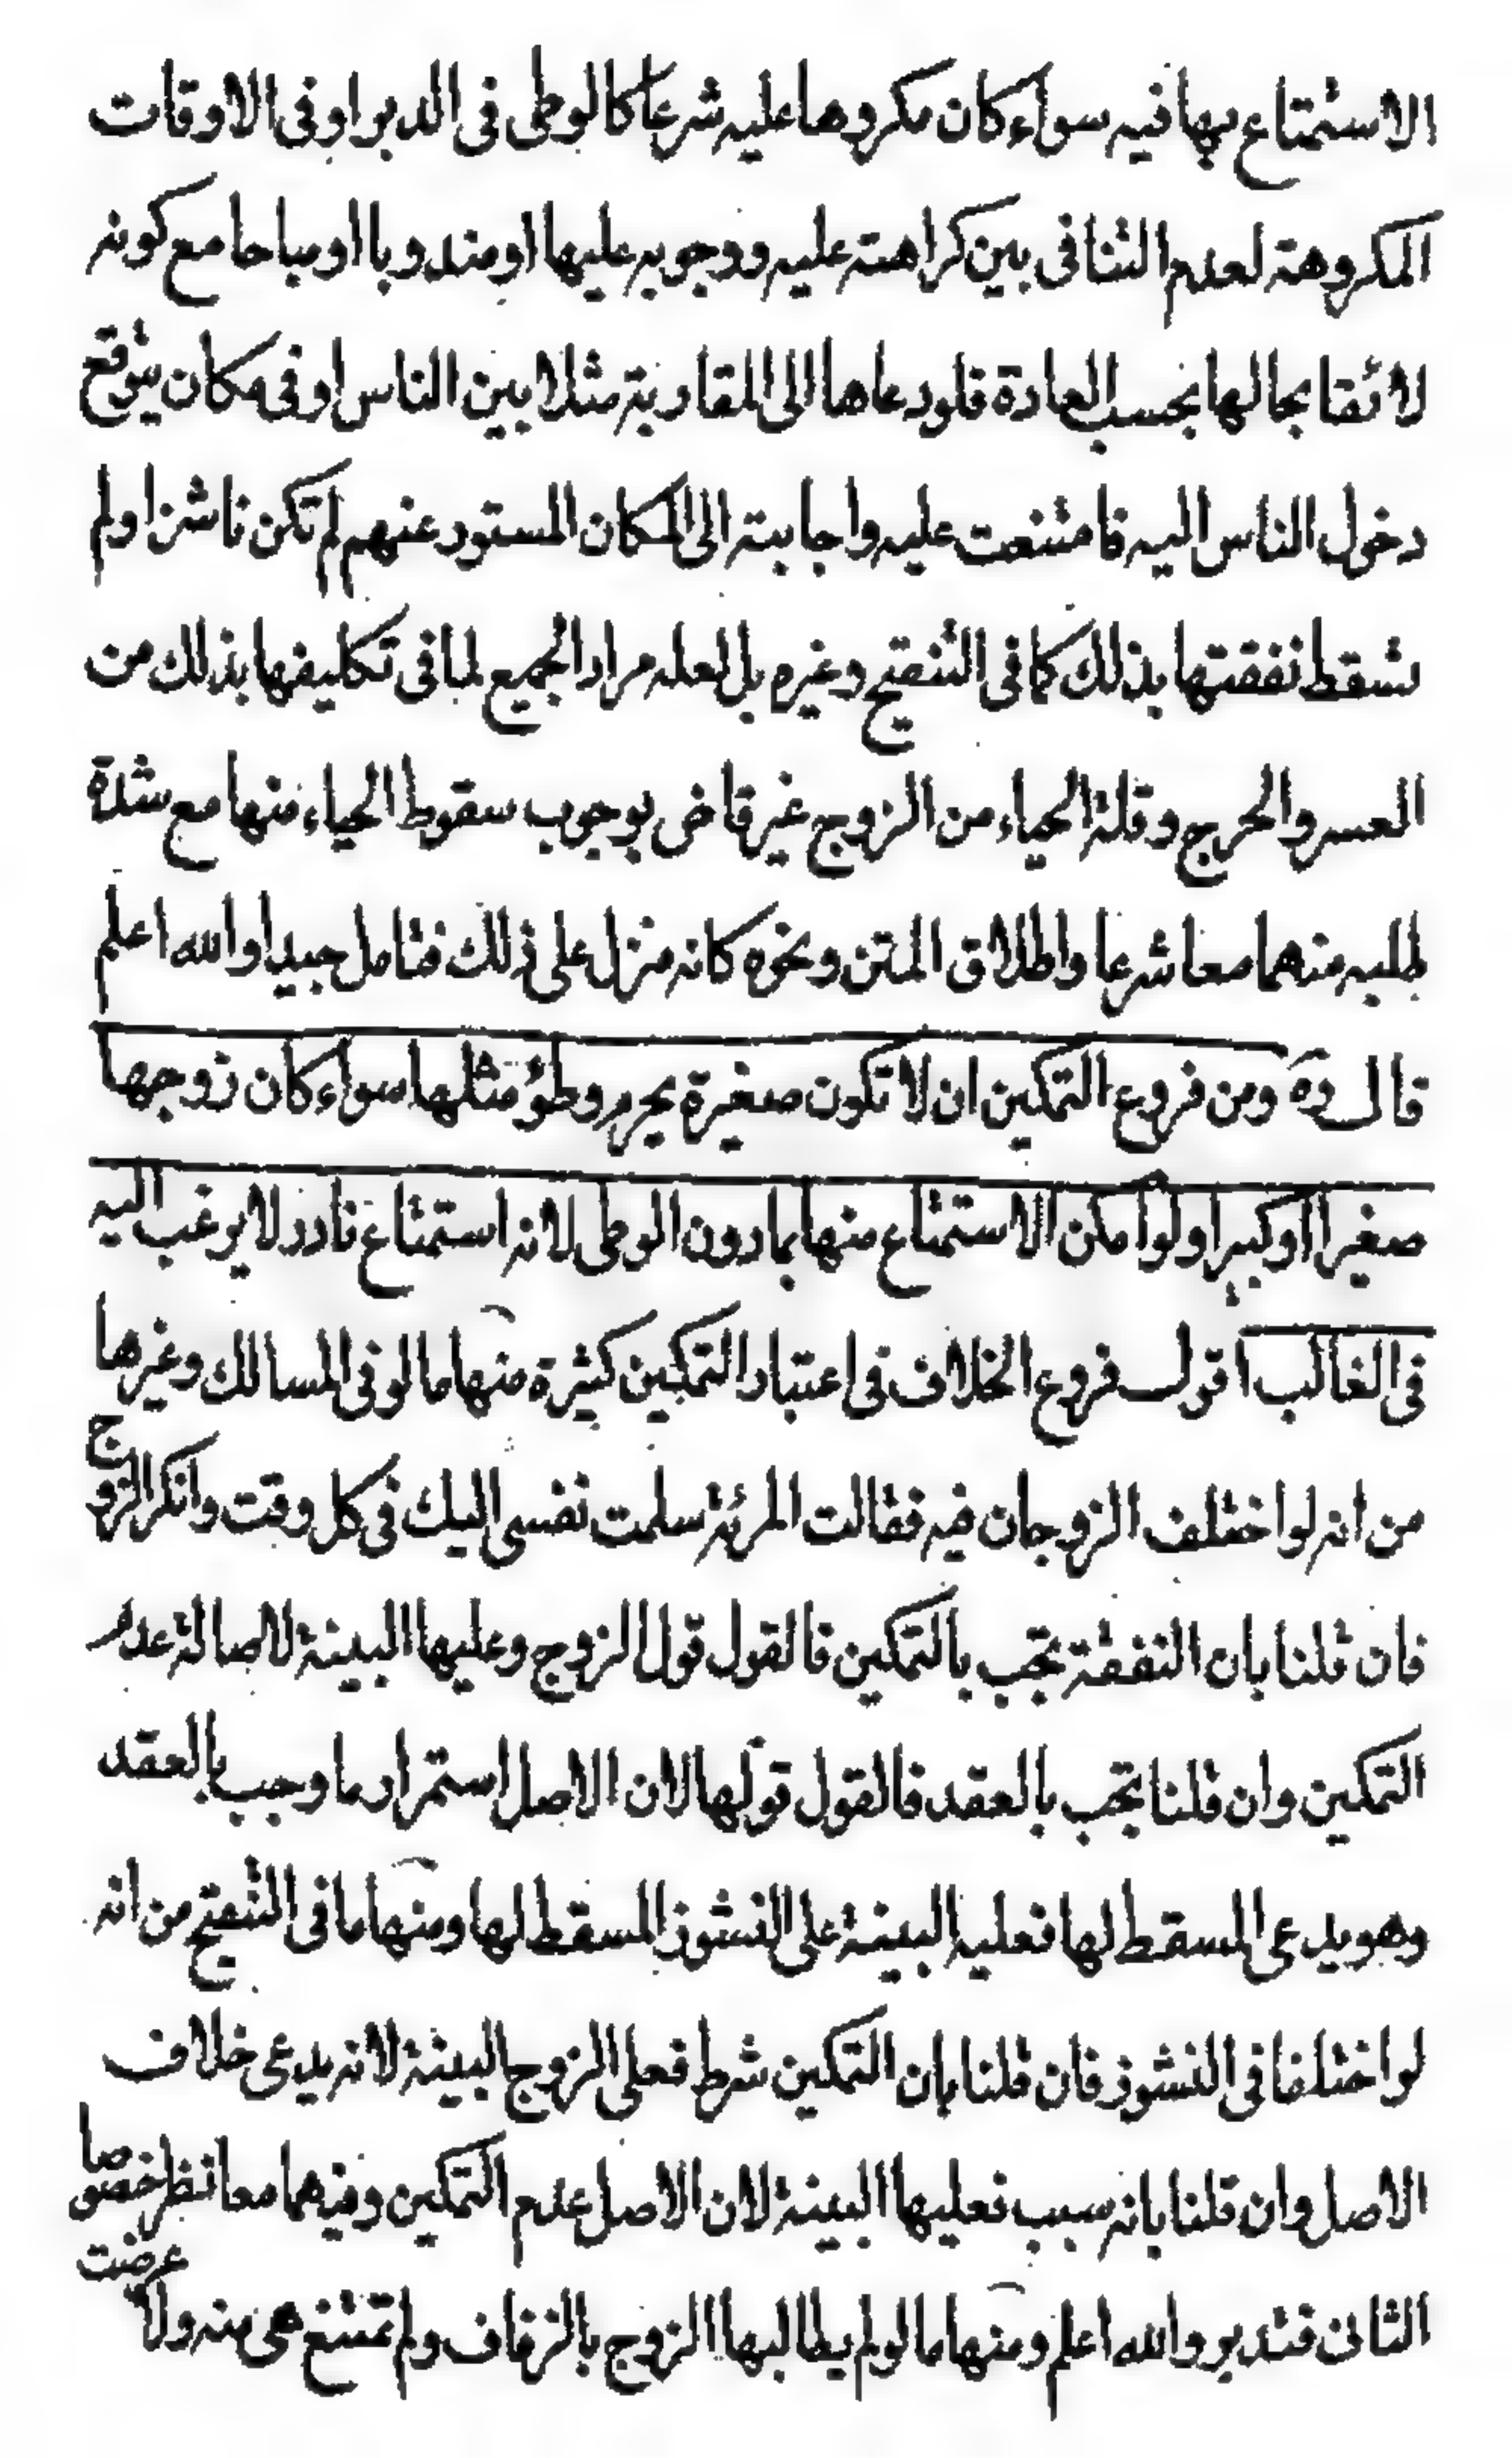 الاستمتاع بها فيه سواء كان مكروها عليه شرعا كالوطى فى الدبر او فى الاوقات
المكروهة لعدم التنافى بين كراهته عليه ووجوبه عليها او مندوبا او مباحا مع كونه
لائقا بحالها بحسب العادة فلو دعاها الى المقاربة مثلا بين الناس او فى مكان يتوقع
دخول الناس اليه فامتنعت عليه واجابته الى المكان المستور عنهم لم تكن ناشزا ولم
تسقط نفقتها بذلك كما فى التنقيح وغيره بل لعله مراد الجميع لما فى تكليفها بذلك من
العسر والحرج وقلة الحياء من الزوج غير قاض بوجوب سقوط الحياء منها مع شدة
طلبه منهما معا شرعا واطلاق المتن ونحوه كانه منزل على ذلك فتامل جيدا والله اعلم
قال ره ومن فروع التمكين ان لا تكون صغيرة يحرم وطؤ مثلها سواء كان زوجها
صغيرا او كبيرا ولو امكن الاستمتاع منها بما دون الوطى لانه استمتاع نادر لا يرغب اليه
فى الغالب اقول فروع الخلاف فى اعتبار التمكين كثيرة منها ما لو فى المسالك وغيرها
من انه لو اختلف الزوجان فيه فقالت المرئة سلمت نفسى اليك فى كل وقت وانكر الزوج
فان قلنا بان النفقة تجب بالتمكين فالقول قول الزوج وعليها البينة لاصالة عدم
التمكين وان قلنا تجب بالعقد فالقول قولها لان الاصل استمرار ما وجب بالعقد
وهو يدعى المسقط لها فعليه البينة على النشوز المسقط لها ومنها ما فى التنقيح من انه
لو اختلفا فى النشوز فان قلنا بان التمكين شرط فعلى الزوج البينة لانه يدعى خلاف
الاصل وان قلنا بانه سبب فعليها البينة لان الاصل عدم التمكين وفيهما معا نظر خصوصا
الثانى فتدبر والله اعلم ومنها ما لو لم يطالبها الزوج بالزفاف ولم تمتنع هى منه ولا عرضت